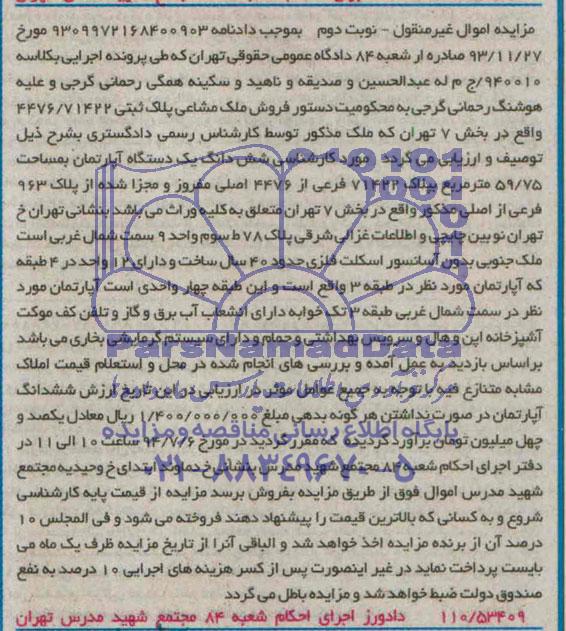 مزایده اموال غیرمنقول - نوبت دوم بموجب دادنامه ۹۳۰۹۹۷۲۱۶۸۴۰۰۹۰۳ مورخ
۹۳/۱۱/۲۷ صادره از شعبه ۸۴ دادگاه عمومی حقوقی تهران که طی پرونده اجرایی بکلاسه
۹۴۰۰۱۰/ج م له عبدالحسین و صدیقه و ناهید و سکینه همگی رحمانی گرجی و علیه
هوشنگ رحمانی گرجی به محکومیت دستور فروش ملک مشاعی پلاک ثبتی ۴۴۷۶/۷۱۴۲۲
واقع در بخش ۷ تهران که ملک مذکور توسط کارشناس رسمی دادگستری بشرح ذیل
توصیف و ارزیابی می گردد مورد کارشناسی شش دانگ یک دستگاه آپارتمان بمساحت
۵۹/۷۵ مترمربع پلاک ۷۱۴۲۲ فرعی از ۴۴۷۶ اصلی مفروز و مجزا شده از پلاک ۹۶۳
فرعی از اصلی مذکور واقع در بخش ۷ تهران متعلق به کلیه وراث می باشد بنشانی تهران خ
تهران نو بین چایچی و اطلاعات غزالی شرقی پلاک ۷۸ ط سوم واحد ۹ سمت شمال غربی است
ملک جنوبی بدون آسانسور اسکلت فلزی حدود ۴۰ سال ساخت و دارای ۱۲ واحد در ۴ طبقه
که آپارتمان مورد نظر در طبقه ۳ واقع است و این طبقه چهار واحدی است آپارتمان مورد
نظر در سمت شمال غربی طبقه ۳ تک خوابه دارای انشعاب آب برق و گاز و تلفن کف موکت
آشپزخانه اپن و هال و سرویس بهداشتی و حمام و دارای سیستم گرمایشی بخاری می باشد
براساس بازدید به عمل آمده و بررسی های انجام شده در محل و استعلام قیمت املاک
مشابه متنازع فیه با توجه به جمیع عوامل موثر در ارزیابی در این تاریخ ارزش ششدانگ
آپارتمان در صورت نداشتن هر گونه بدهی مبلغ ۱/۴۰۰/۰۰۰/۰۰۰ ریال معادل یکصد و
چهل میلیون تومان برآورد گردیده که مقرر گردید در مورخ ۹۴/۷/۶ ساعت ۱۰ الی ۱۱ در
دفتر اجرای احکام شعبه ۸۴ مجتمع شهید مدرس بنشانی خ دماوند ابتدای خ وحیدیه مجتمع
شهید مدرس اموال فوق از طریق مزایده بفروش برسد مزایده از قیمت پایه کارشناسی
شروع و به کسانی که بالاترین قیمت را پیشنهاد دهند فروخته می شود و فی المجلس ۱۰
درصد آن از برنده مزایده اخذ خواهد شد و الباقی آنرا از تاریخ مزایده ظرف یک ماه می
بایست پرداخت نماید در غیر اینصورت پس از کسر هزینه های اجرایی ۱۰ درصد به نفع
صندوق دولت ضبط خواهد شد و مزایده باطل می گردد
۱۱۰/۵۳۴۰۹ دادورز اجرای احکام شعبه ۸۴ مجتمع شهید مدرس تهران
ParsNamadData
پایگاه اطلاع رسانی مناقصه و مزایده
۰۲۱-۸۸۳۴۹۶۷۰-۵